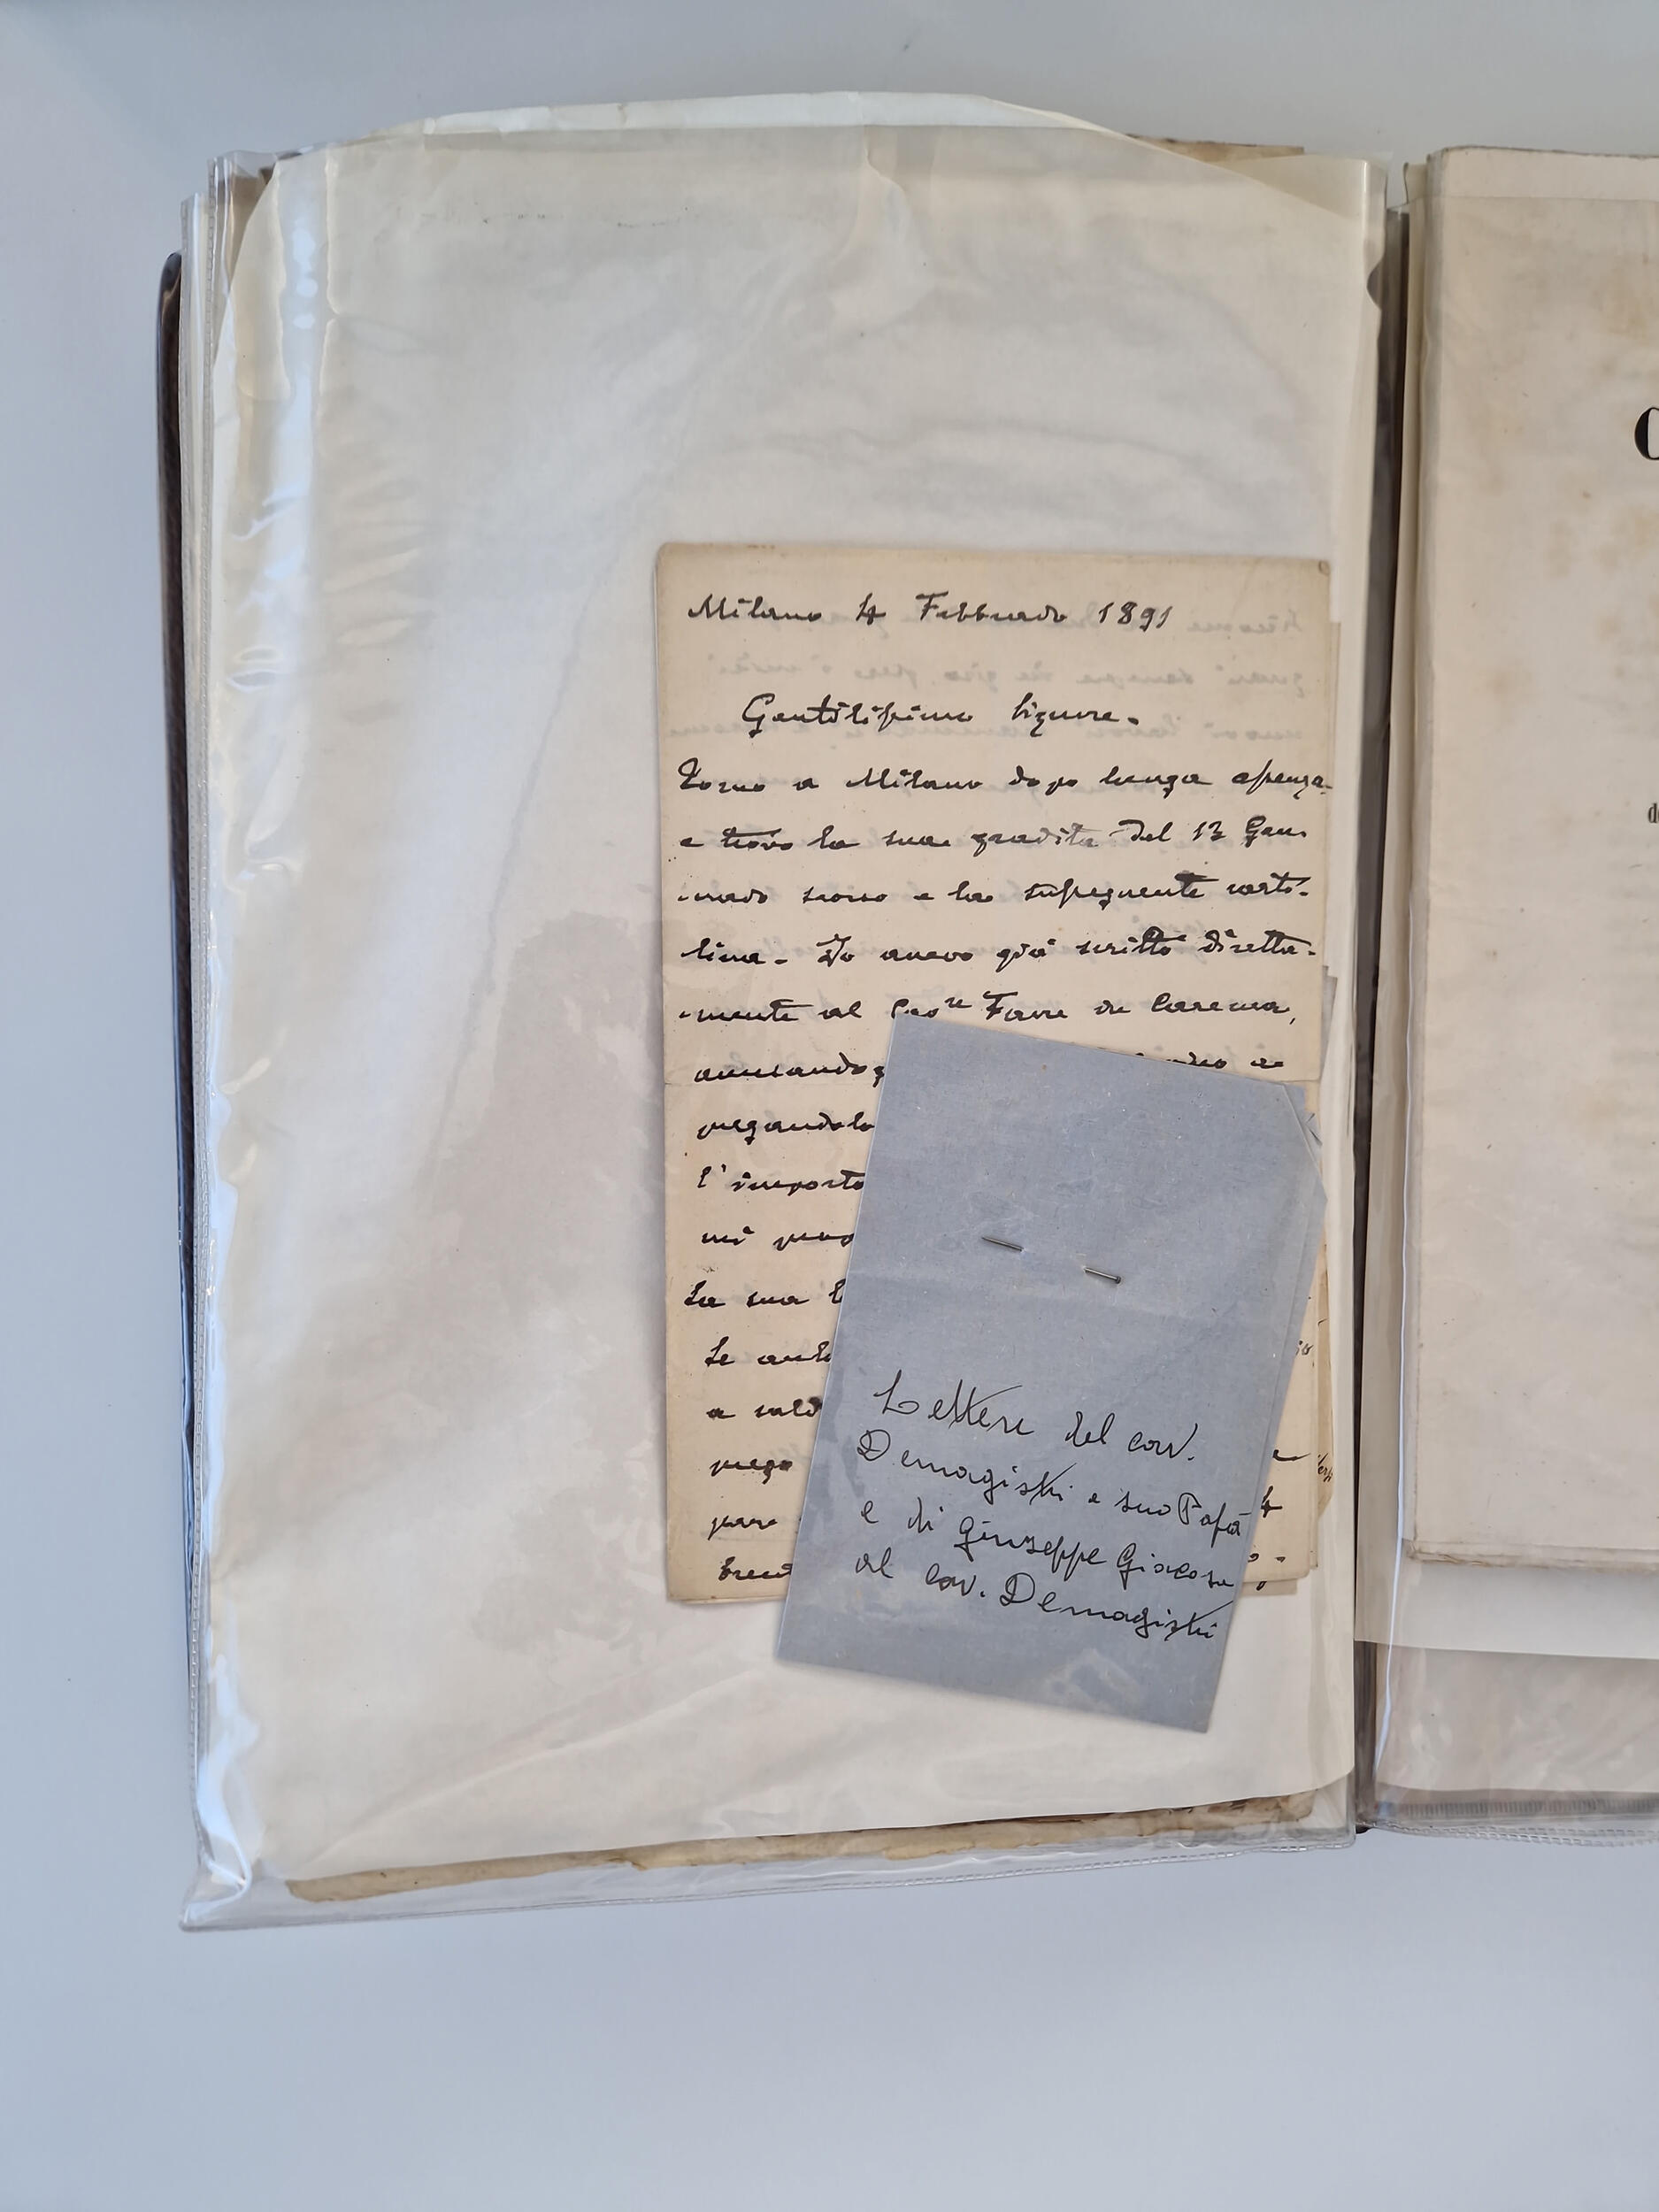 Milano 4 Febbraio 1891
Gentilissimo Signore.
Torno a Milano dopo lunga assenza
e trovo la sua gradita del 13 Gen.
-naio scorso e la susseguente carto-
lina - Io avevo già scritto diretta-
-mente al Cavre Favre di Carema,
pregandolo
l'importo
mi
La sua
Le
a
prego
pare
Lettere del cav.
Demagistri e suo Papà
e di Giuseppe Giacosa
al cav. Demagistri
C